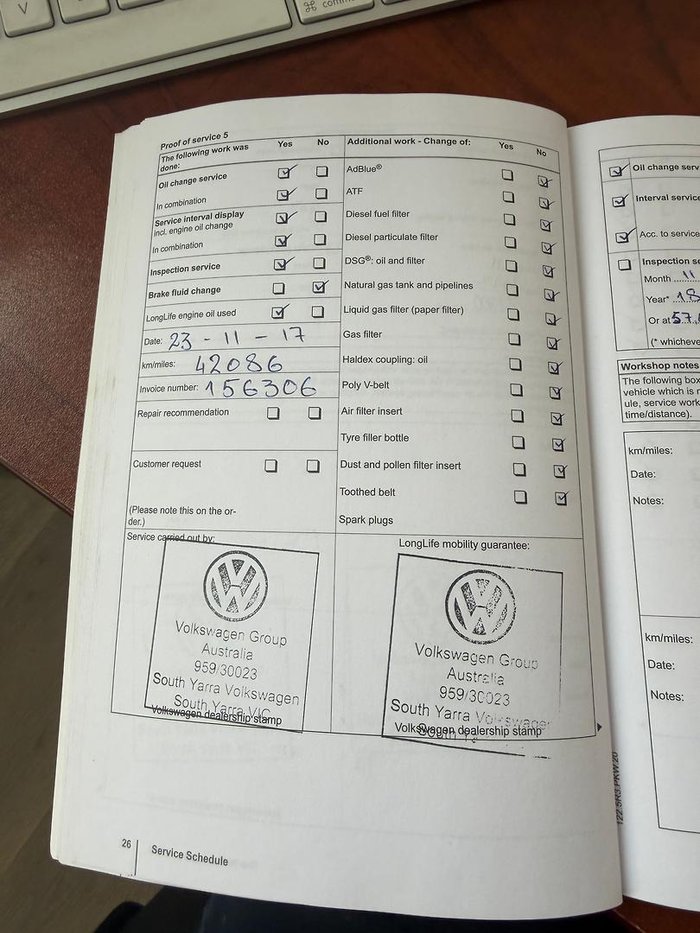 V
⌘
Proof of service 5
The following work was
done:
Yes
No
Oil change service
In combination
Service interval display
incl. engine oil change
In combination
Inspection service
Brake fluid change
LongLife engine oil used
Date: 23 - 11 - 17
km/miles: 42086
Invoice number: 156306
Repair recommendation
Customer request
(Please note this on the or-
der.)
Additional work - Change of:
Yes
No
AdBlue®
ATF
Diesel fuel filter
Diesel particulate filter
DSG®: oil and filter
Natural gas tank and pipelines
Liquid gas filter (paper filter)
Gas filter
Haldex coupling: oil
Poly V-belt
Air filter insert
Tyre filler bottle
Dust and pollen filter insert
Toothed belt
Spark plugs
Service carried out by:
Volkswagen Group
Australia
959/30023
South Yarra Volkswagen
South Yarra VIC
Volkswagen dealership stamp
LongLife mobility guarantee:
Volkswagen Group
Australia
959/30023
South Yarra Volkswagen
South
Volkswagen dealership stamp
26
Service Schedule
Oil change serv
Interval service
Acc. to service
Inspection se
Month 11
Year* 18
Or at 57
(* whicheve
Workshop notes
The following box
vehicle which is
ule, service work
time/distance).
km/miles:
Date:
Notes:
km/miles:
Date:
Notes:
122.5R3.PKW.20